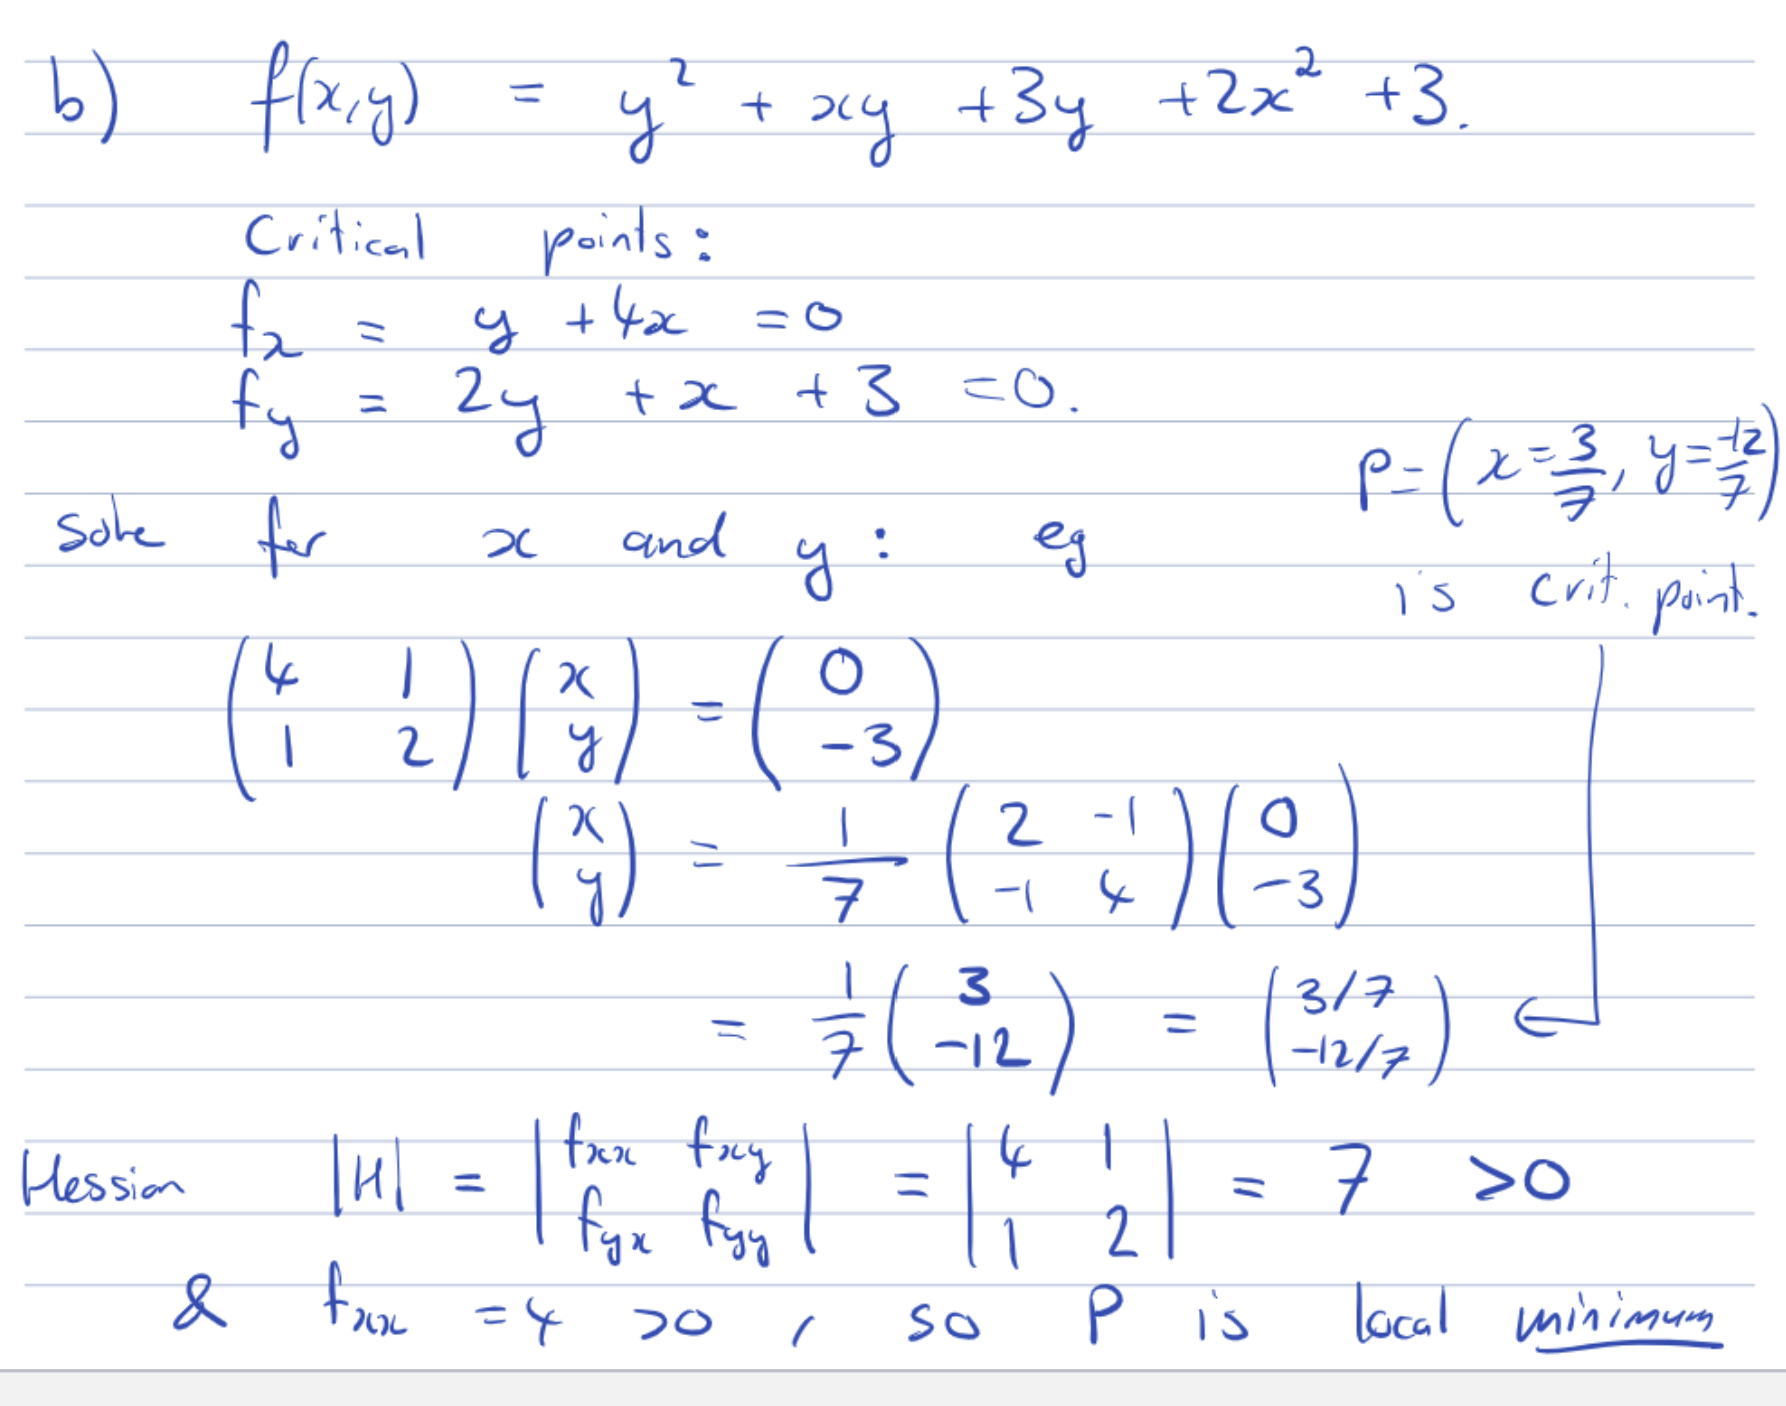 b) f(x,y) = y² + xy + 3y + 2x² + 3.
Critical points:
fₓ = y + 4x = 0
f_y = 2y + x + 3 = 0.
P = (x = 3/7, y = -12/7)
is crit. point.
Solve for x and y : eg
(4 1; 1 2) (x; y) = (0; -3)
(x; y) = 1/7 (2 -1; -1 4) (0; -3)
= 1/7 (3; -12) = (3/7; -12/7)
Hessian |H| = |fₓₓ fₓy; fyₓ fyy| = |4 1; 1 2| = 7 >0
& fₓₓ = 4 >0, so P is local minimum